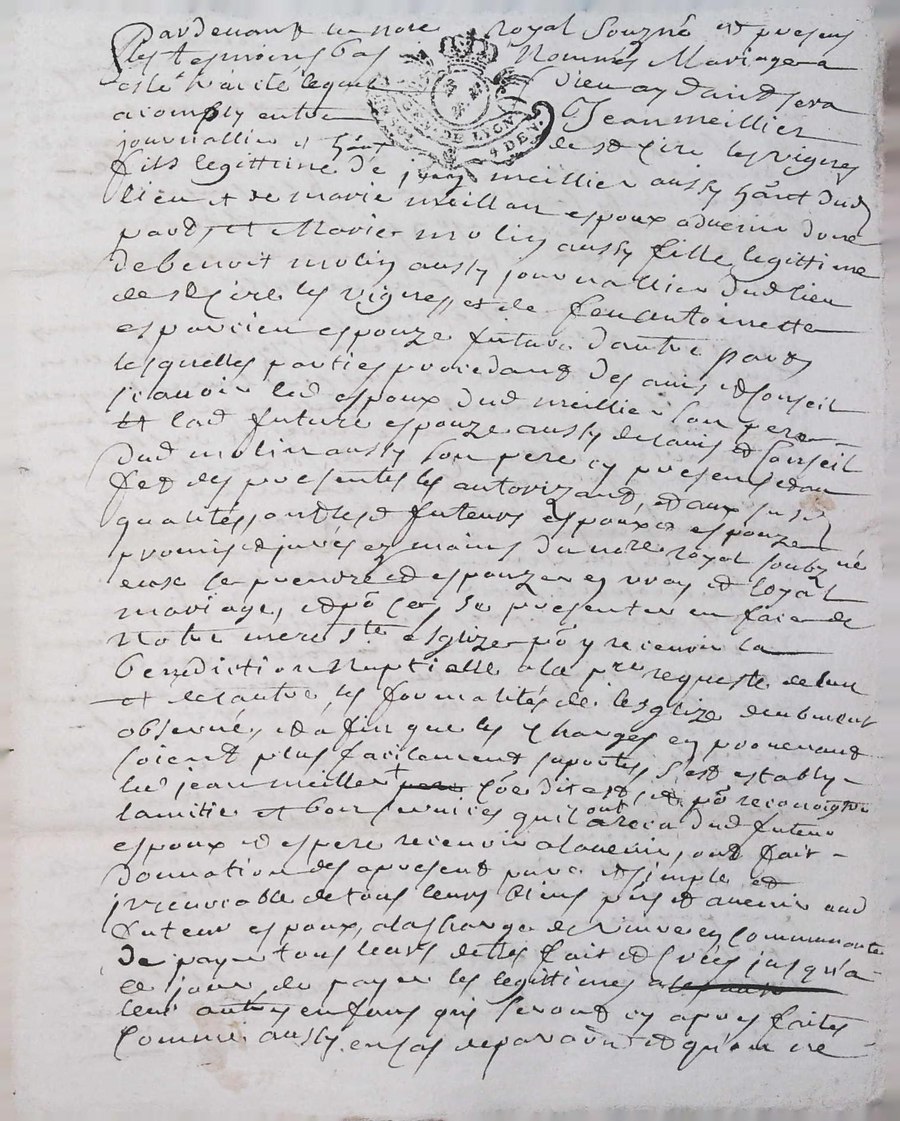 Pardevant le nore royal Souzné et presens
les temoins bas Nommés Mariage a
esté traité lequel dieu aydant sera
acomply entre Jean meillier
GEN. DE LYON
4 DE N.
journallier et hánt de st Cire les vignes
fils legittime de jean meillier aussy hánt dud
lieu et de marie meillan espoux advenir dune
part, et Marie molin aussy fille legittime
de benoit molin aussy journallier dud lieu
de st Cire les vignes et de feu antoinette
esparcieu espouze future dautre part
lesquelles parties procedant des avis et Conseil
scavoir led espoux dud meillier son pere
et lad future espouze aussy de lavis et Conseil
dud molin aussy son pere cy presens et au
fet des presentes les autorizant, et aux susd
qualités, ont lesd futeurs espoux et espouze
promis et jurés ez mains du nore royal soubzné
de se prendre et espouzer en vray et loyal
mariage, et pō ce se presenter en face de
Notre mere ste esglize pō y recevoir la
benediction Nuptialle a la pre requeste de lun
et de lautre, les formalités de lesglize deubment
observé, et afin que les Charges en provenant
soient plus facilement suportés, s'est estably
led jean meillier + pere et pō reconoistre
lamitié et bons services quil ont receu dud futeur
espoux et espere recevoir a lavenir, ont fait
donnation des apresent pure et simple et
irrevocable de tous leurs biens pñs et avenir aud
futeur espoux, a la charge de vivre en Communauté
de payer tous leurs dettes fait et créés jusqu'a
ce jour de payer les legittimes a
leur autres enfans qui seront cy apres faites
Comme aussy en cas de